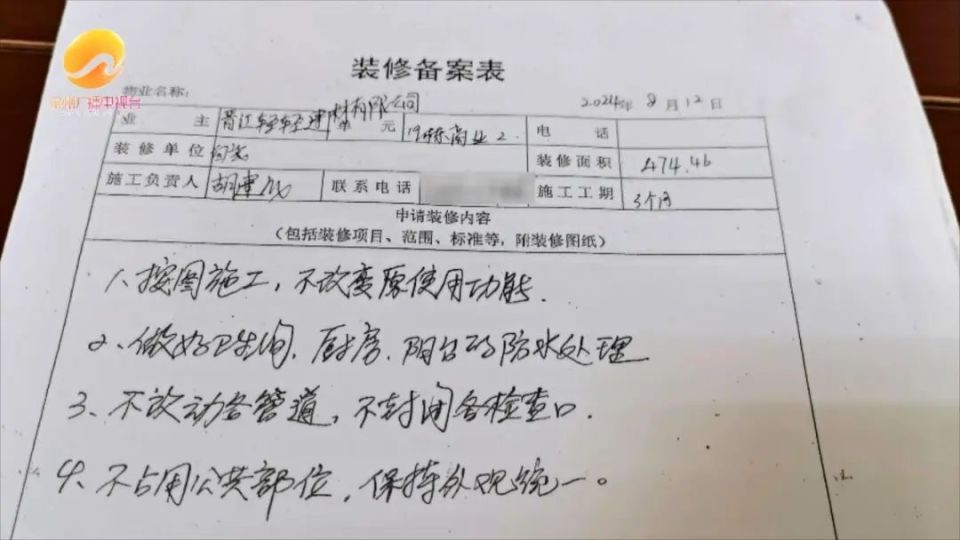 泉州广播电视台
装修备案表
物业名称：
2024年8月12日
业主 晋江轻轻建材有限公司 单元 19栋商业2. 电话
装修单位 装修面积 474.46
施工负责人 联系电话 施工工期 3个月
申请装修内容
（包括装修项目、范围、标准等，附装修图纸）
1、按图施工，不改变原使用功能.
2、做好卫生间、厨房、阳台的防水处理
3、不改动各管道，不封闭各检查口.
4、不占用公共部位，保持外观统一。